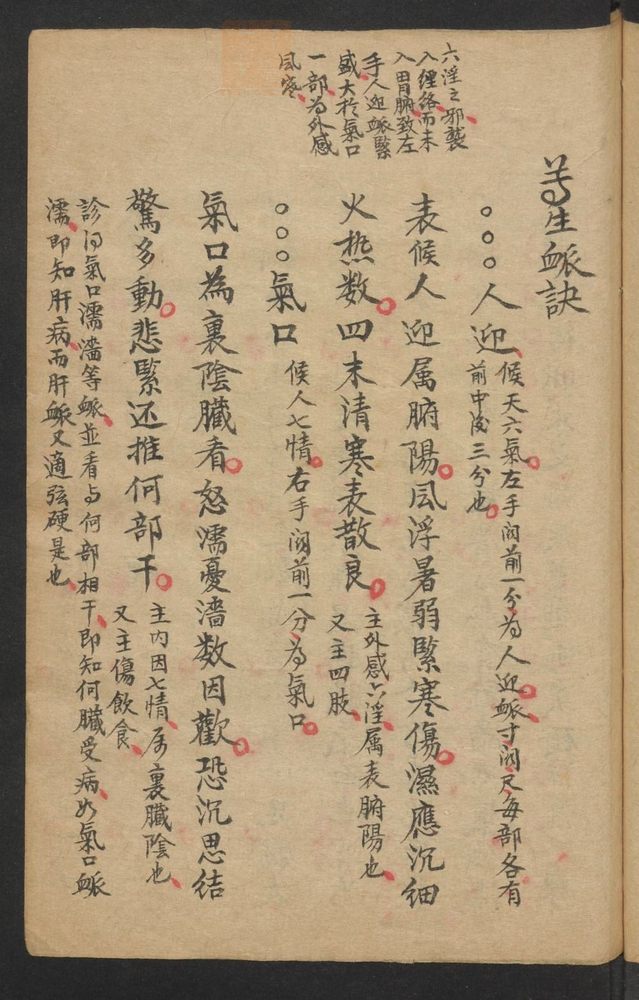 六淫之邪襲
入經絡而未
入胃腑致左
手人迎脈緊
盛大於氣口
一部為外感
風寒
尊生脈訣
○○○人迎 候天六氣左手関前一分為人迎脈寸関尺每部各有
前中後三分也
表候人迎属腑陽風浮暑弱緊寒傷濕應沉細
火热数四末清寒表散良 主外感六淫属表腑陽也
又主四肢
○○○氣口 候人七情右手関前一分為氣口
氣口為裏陰臟看怒濡憂濇数因歡恐沉思結
驚多動悲緊还推何部干 主内因七情属裏臟陰也
又主傷飲食
診得氣口濡濇等脈並看与何部相干即知何臟受病如氣口脈
濡即知肝病而肝脈又適弦硬是也